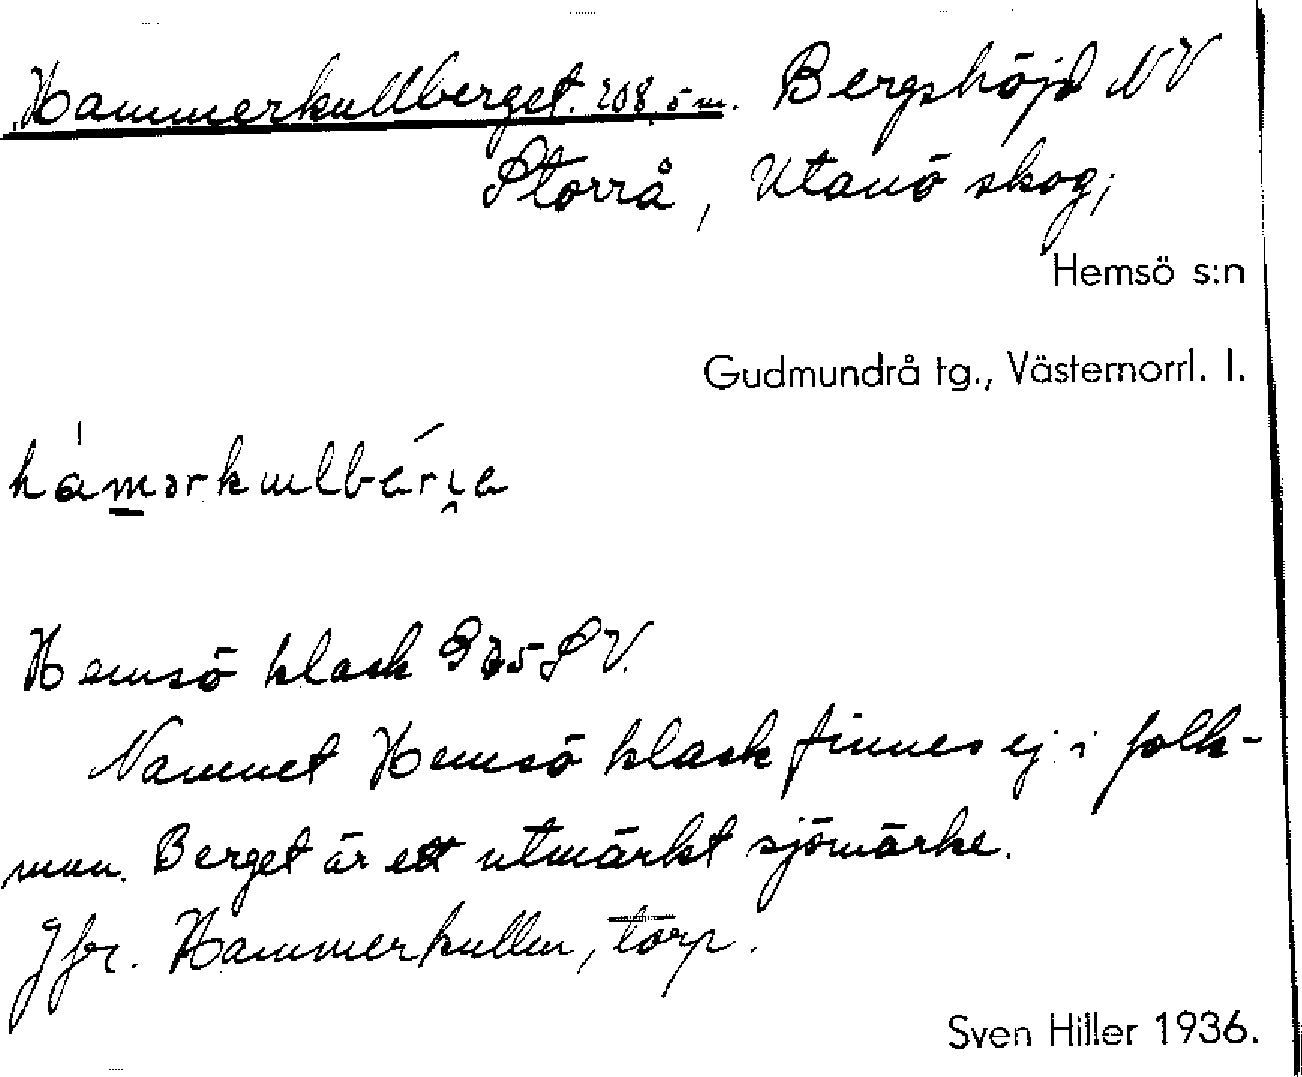 Hammerkullberget. 208,5 m. Bergshöjd NV
Storrå, Utanö skog;
Hemsö s:n
Gudmundrå tg., Västernorrl. l.
Hemsö klack SV.
Namnet Hemsö klack finnes ej i folk-
mun. Berget är ett utmärkt sjömärke.
Jfr. Hammerkullen, torp.
Sven Hiller 1936.